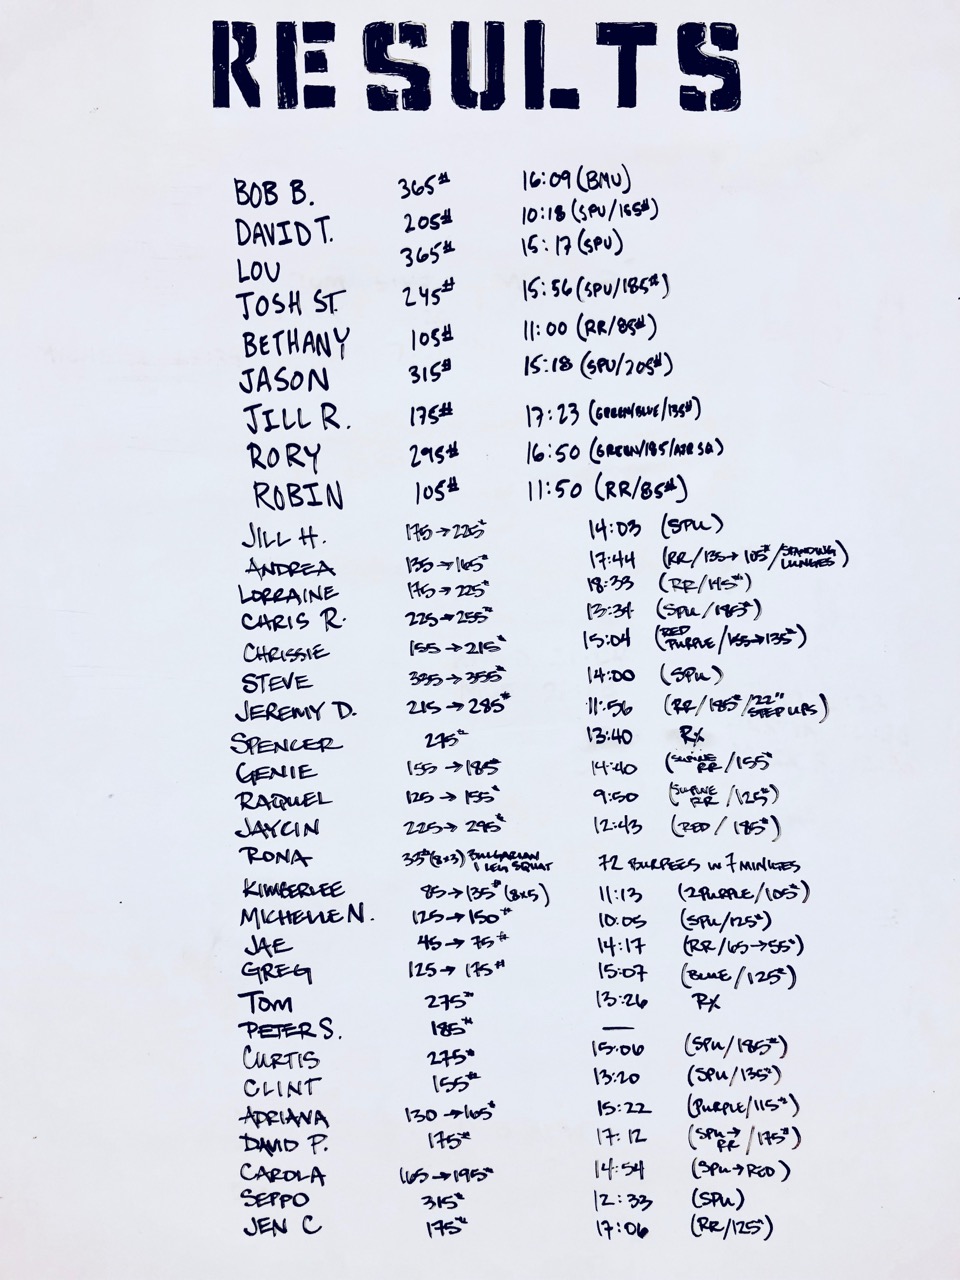 RESULTS
BOB B. 365# 16:09 (BMU)
DAVID T. 205# 10:18 (SPU/155#)
LOU 365# 15:17 (SPU)
JOSH ST. 245# 15:56 (SPU/185#)
BETHANY 105# 11:00 (RR/85#)
JASON 315# 15:18 (SPU/205#)
JILL R. 175# 17:23 (GREEN/BLUE/135#)
RORY 295# 16:50 (GREEN/185/AIR SQ)
ROBIN 105# 11:50 (RR/85#)
JILL H. 175→225# 14:03 (SPU)
ANDREA 135→165# 17:44 (RR/135→105#/STANDING LUNGES)
LORRAINE 175→225# 18:33 (RR/145#)
CHRIS R. 225→255# 13:34 (SPU/185#)
CHRISSIE 155→215# 15:04 (RED PURPLE/155→135#)
STEVE 335→355# 14:00 (SPU)
JEREMY D. 215→285# 11:56 (RR/185#/22" STEP UPS)
SPENCER 275# 13:40 RX
GENIE 155→185# 14:40 (SUPINE RR/155#
RAQUEL 125→155# 9:50 (SUPINE RR/125#)
JAYCIN 225→295# 12:43 (RED/185#)
RONA 35#(8x3) BULGARIAN 1 LEG SQUAT 72 BURPEES IN 7 MINUTES
KIMBERLEE 85→135# (8x5) 11:13 (2PURPLE/105#)
MICHELLE N. 125→150# 10:05 (SPU/125#)
JAE 45→75# 14:17 (RR/65→55#)
GREG 125→175# 15:07 (BLUE/125#)
TOM 275# 13:26 RX
PETER S. 185# —
CURTIS 275# 15:06 (SPU/185#)
CLINT 155# 13:20 (SPU/135#)
ADRIANA 130→165# 15:22 (PURPLE/115#)
DAVID P. 175# 17:12 (SPU→RR/175#)
CAROLA 165→195# 14:54 (SPU→RED)
SEPPO 315# 12:33 (SPU)
JEN C 175# 17:06 (RR/125#)